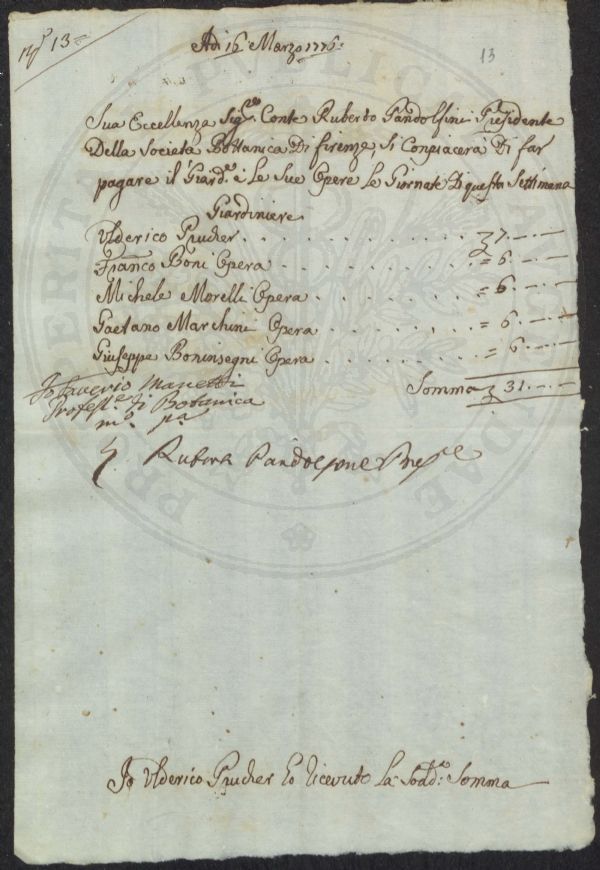 N.º 13
Adi 16 Marzo 1776:
13
Sua Eccellenza Sig:re Conte Ruberto Pandolfini Presidente
Della Società Bottanica Di firenza, Si Conpiacerà Di far
pagare il Giard:e e Le Sue Opere Le Giornate Di questa Settimana
Giardiniere
Ulderico Prucher . . . . . . . . . . 7. — . —
Franco Boni Opera . . . . . . . . . = 6. — . —
Michele Morelli Opera . . . . . . . = 6. — . —
Gaetano Marchini Opera . . . . . . = 6. — . —
Giuseppe Boninsegni Opera . . . . . = 6. — . —
Somma 31. — . —
Io Saverio Manetti
Profess:e di Botanica
m:o p:a
Ruberto Pandolfini Pres:e
Io Ulderico Prucher ho ricevuto La Sodd:a Somma
PROSPERITATI PUBLICAE AUGENDAE